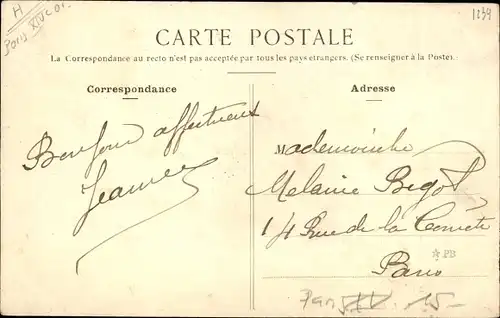 H
Paris XIV
1239
CARTE POSTALE
La Correspondance au recto n'est pas acceptée par tous les pays étrangers. (Se renseigner à la Poste).
Correspondance
Adresse
Bonjour affectueux
Jeanne
Mademoiselle
Melanie Bigot
14 Rue de la Comète
Paris
PB
Paris XV 15-